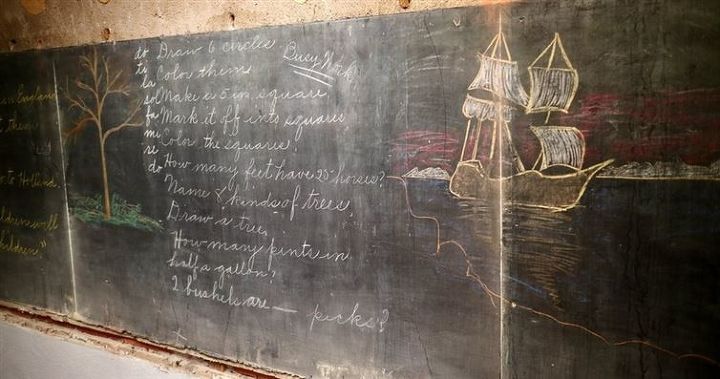 England
them
to Holland.
will
Busy Work
do Draw 6 circles.
ti Color them
la
sol Make a 5 in. square
fa Mark it off into squares
mi Color the squares.
re
do How many feet have 25 horses?
Name 8 kinds of trees.
Draw a tree.
How many pints in
half a gallon?
2 bushels are — pecks?